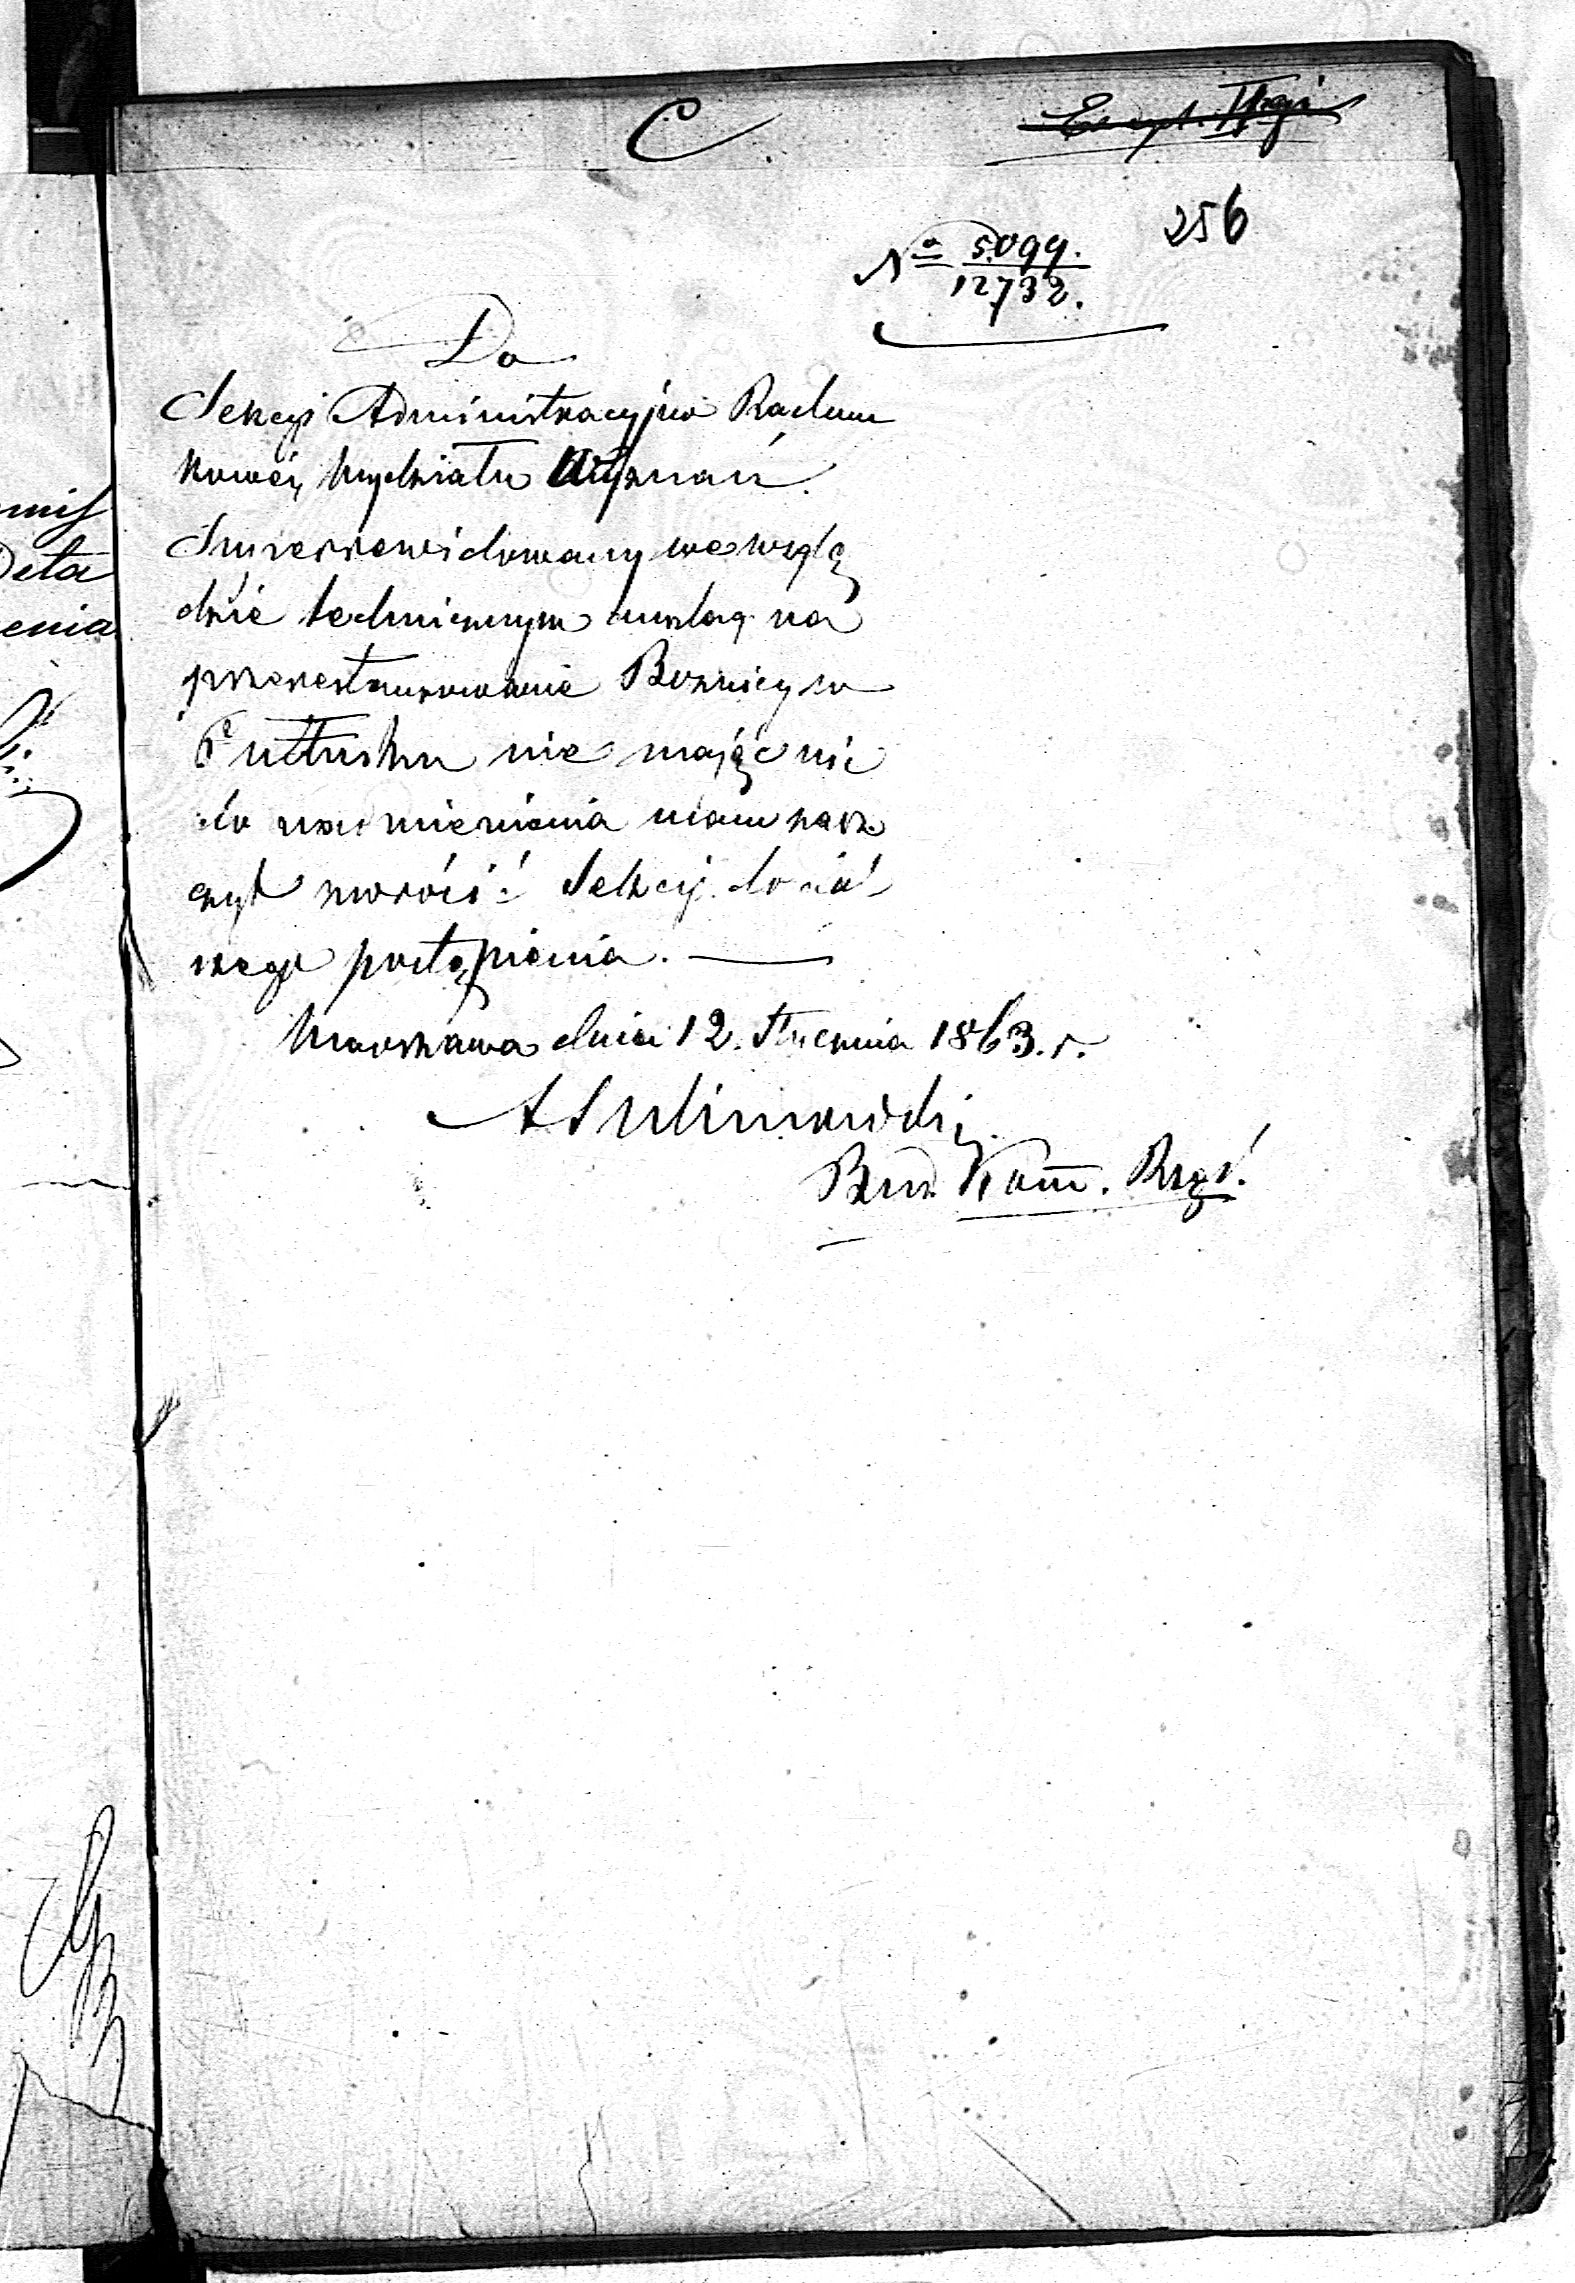 C
256
№ 5099.
12732.
Do
Sekcyi Administracyjno Rachun
kowéj Wydziału Wyznań.
Superrewidowany we wzglę
dzie technicznym anszlag na
przerestaurowanie Bóżnicy w
Pułtusku nie mając nic
do nadmienienia mam zasz
czyt zwrócić Sekcyi do dal
szego postąpienia. —
Warszawa dnia 12. Stycznia 1863. r.
A Sulimowski
Bud Kom. Rząd.
mis
Deta
enia